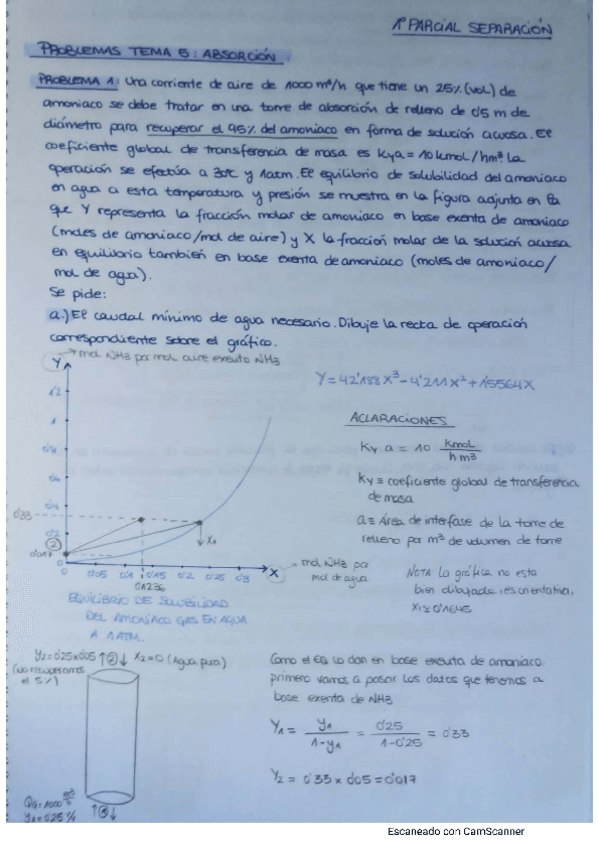 1º PARCIAL SEPARACIÓN
PROBLEMAS TEMA 5: ABSORCIÓN.
PROBLEMA 1: Una corriente de aire de 1000 m³/h que tiene un 25% (vol.) de
amoniaco se debe tratar en una torre de absorción de relleno de 0'5 m de
diámetro para recuperar el 95% del amoniaco en forma de solución acuosa. El
coeficiente global de transferencia de masa es Kya = 10 kmol/hm³ la
operación se efectúa a 30ºC y 1atm. El equilibrio de solubilidad del amoniaco
en agua a esta temperatura y presión se muestra en la figura adjunta en la
que Y representa la fracción molar de amoniaco en base exenta de amoniaco
(moles de amoniaco/mol de aire) y X la fracción molar de la solución acuosa
en equilibrio también en base exenta de amoniaco (moles de amoniaco/
mol de agua).
Se pide:
a.) El caudal mínimo de agua necesario. Dibuje la recta de operación
correspondiente sobre el gráfico.
Y → mol NH3 por mol aire exento NH3
Y = 42'188X³ - 4'211X² + 1'5564X
ACLARACIONES
Ky a = 10 kmol / h m³
Ky ≡ coeficiente global de transferencia
de masa
a ≡ Área de interfase de la torre de
relleno por m³ de volumen de torre
NOTA: La gráfica no esta
bien dibujada, es orientativa.
X1 ≃ 0'1645
0'33
②
0'017
X1
0 0'05 0'1 0'15 0'2 0'25 0'3 X
0'1236
→ mol NH3 por
mol de agua
EQUILIBRIO DE SOLUBILIDAD
DEL AMONIACO GAS EN AGUA
A 1 ATM.
Y2 = 0'25 x 0'05 ↑②↓ X2 = 0 (Agua pura)
(No recuperamos
el 5%)
Como el EQ lo dan en base exenta de amoniaco,
primero vamos a pasar los datos que tenemos a
base exenta de NH3
Y1 = y1 / 1-y1 = 0'25 / 1-0'25 = 0'33
Y2 = 0'33 x 0'05 = 0'017
QG = 1000 m³/h
y1 = 0'25 %
Escaneado con CamScanner